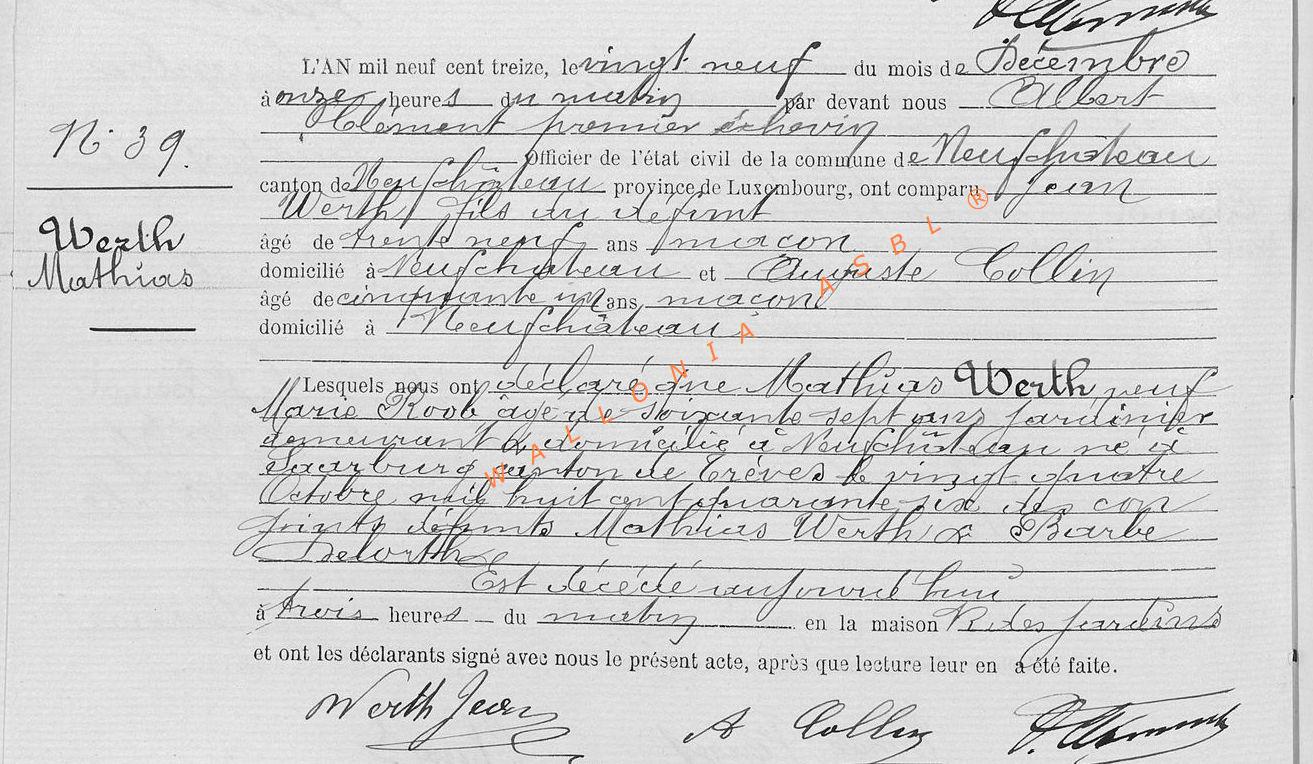 L'AN mil neuf cent treize, le vingt neuf du mois de Décembre
à onze heures du matin par devant nous Albert
Clément premier échevin
Officier de l'état civil de la commune de Neufchâteau
N° 39.
canton de Neufchâteau province de Luxembourg, ont comparu Jean
Werth fils du défunt
Werth
Mathias
âgé de trente neuf ans maçon
domicilié à Neufchâteau et Auguste Collin
âgé de cinquante un ans maçon
domicilié à Neufchâteau
WALLONIA ASBL ®
Lesquels nous ont déclaré que Mathias Werth veuf
Marie Roob âgé de soixante sept ans jardinier
demeurant & domicilié à Neufchâteau né à
Saarburg canton de Trèves le vingt quatre
Octobre mil huit cent quarante six des con
joints défunts Mathias Werth & Barbe
Est décédé aujourd'hui
à trois heures du matin en la maison R. des jardins
et ont les déclarants signé avec nous le présent acte, après que lecture leur en a été faite.
Werth Jean A Collin